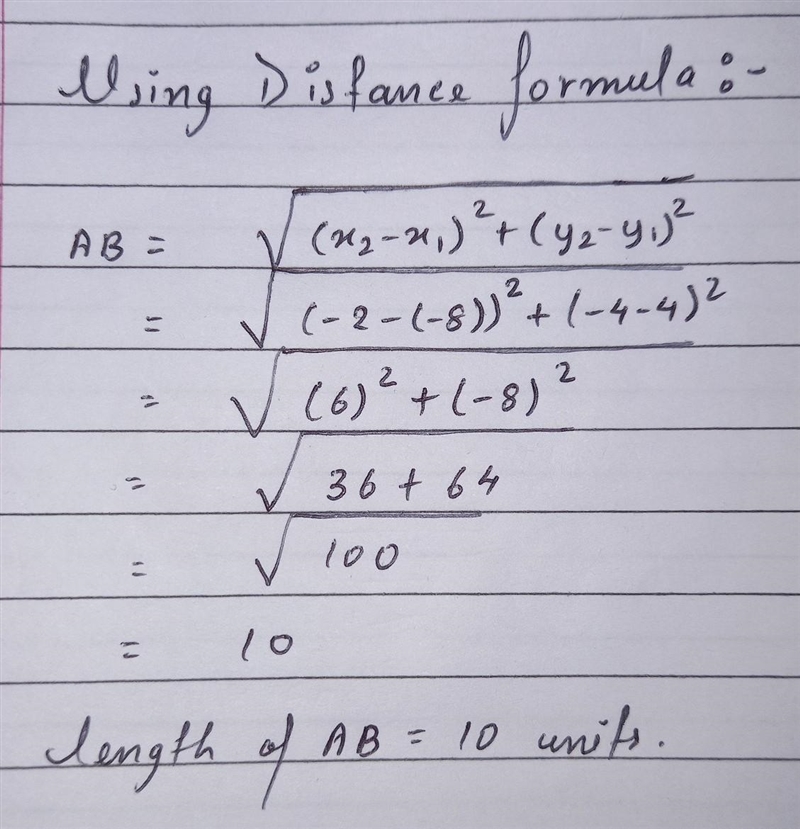 Using Distance formula :-
AB = √(x₂-x₁)² + (y₂-y₁)²
= √(-2-(-8))² + (-4-4)²
= √(6)² + (-8)²
= √36 + 64
= √100
= 10
length of AB = 10 units.